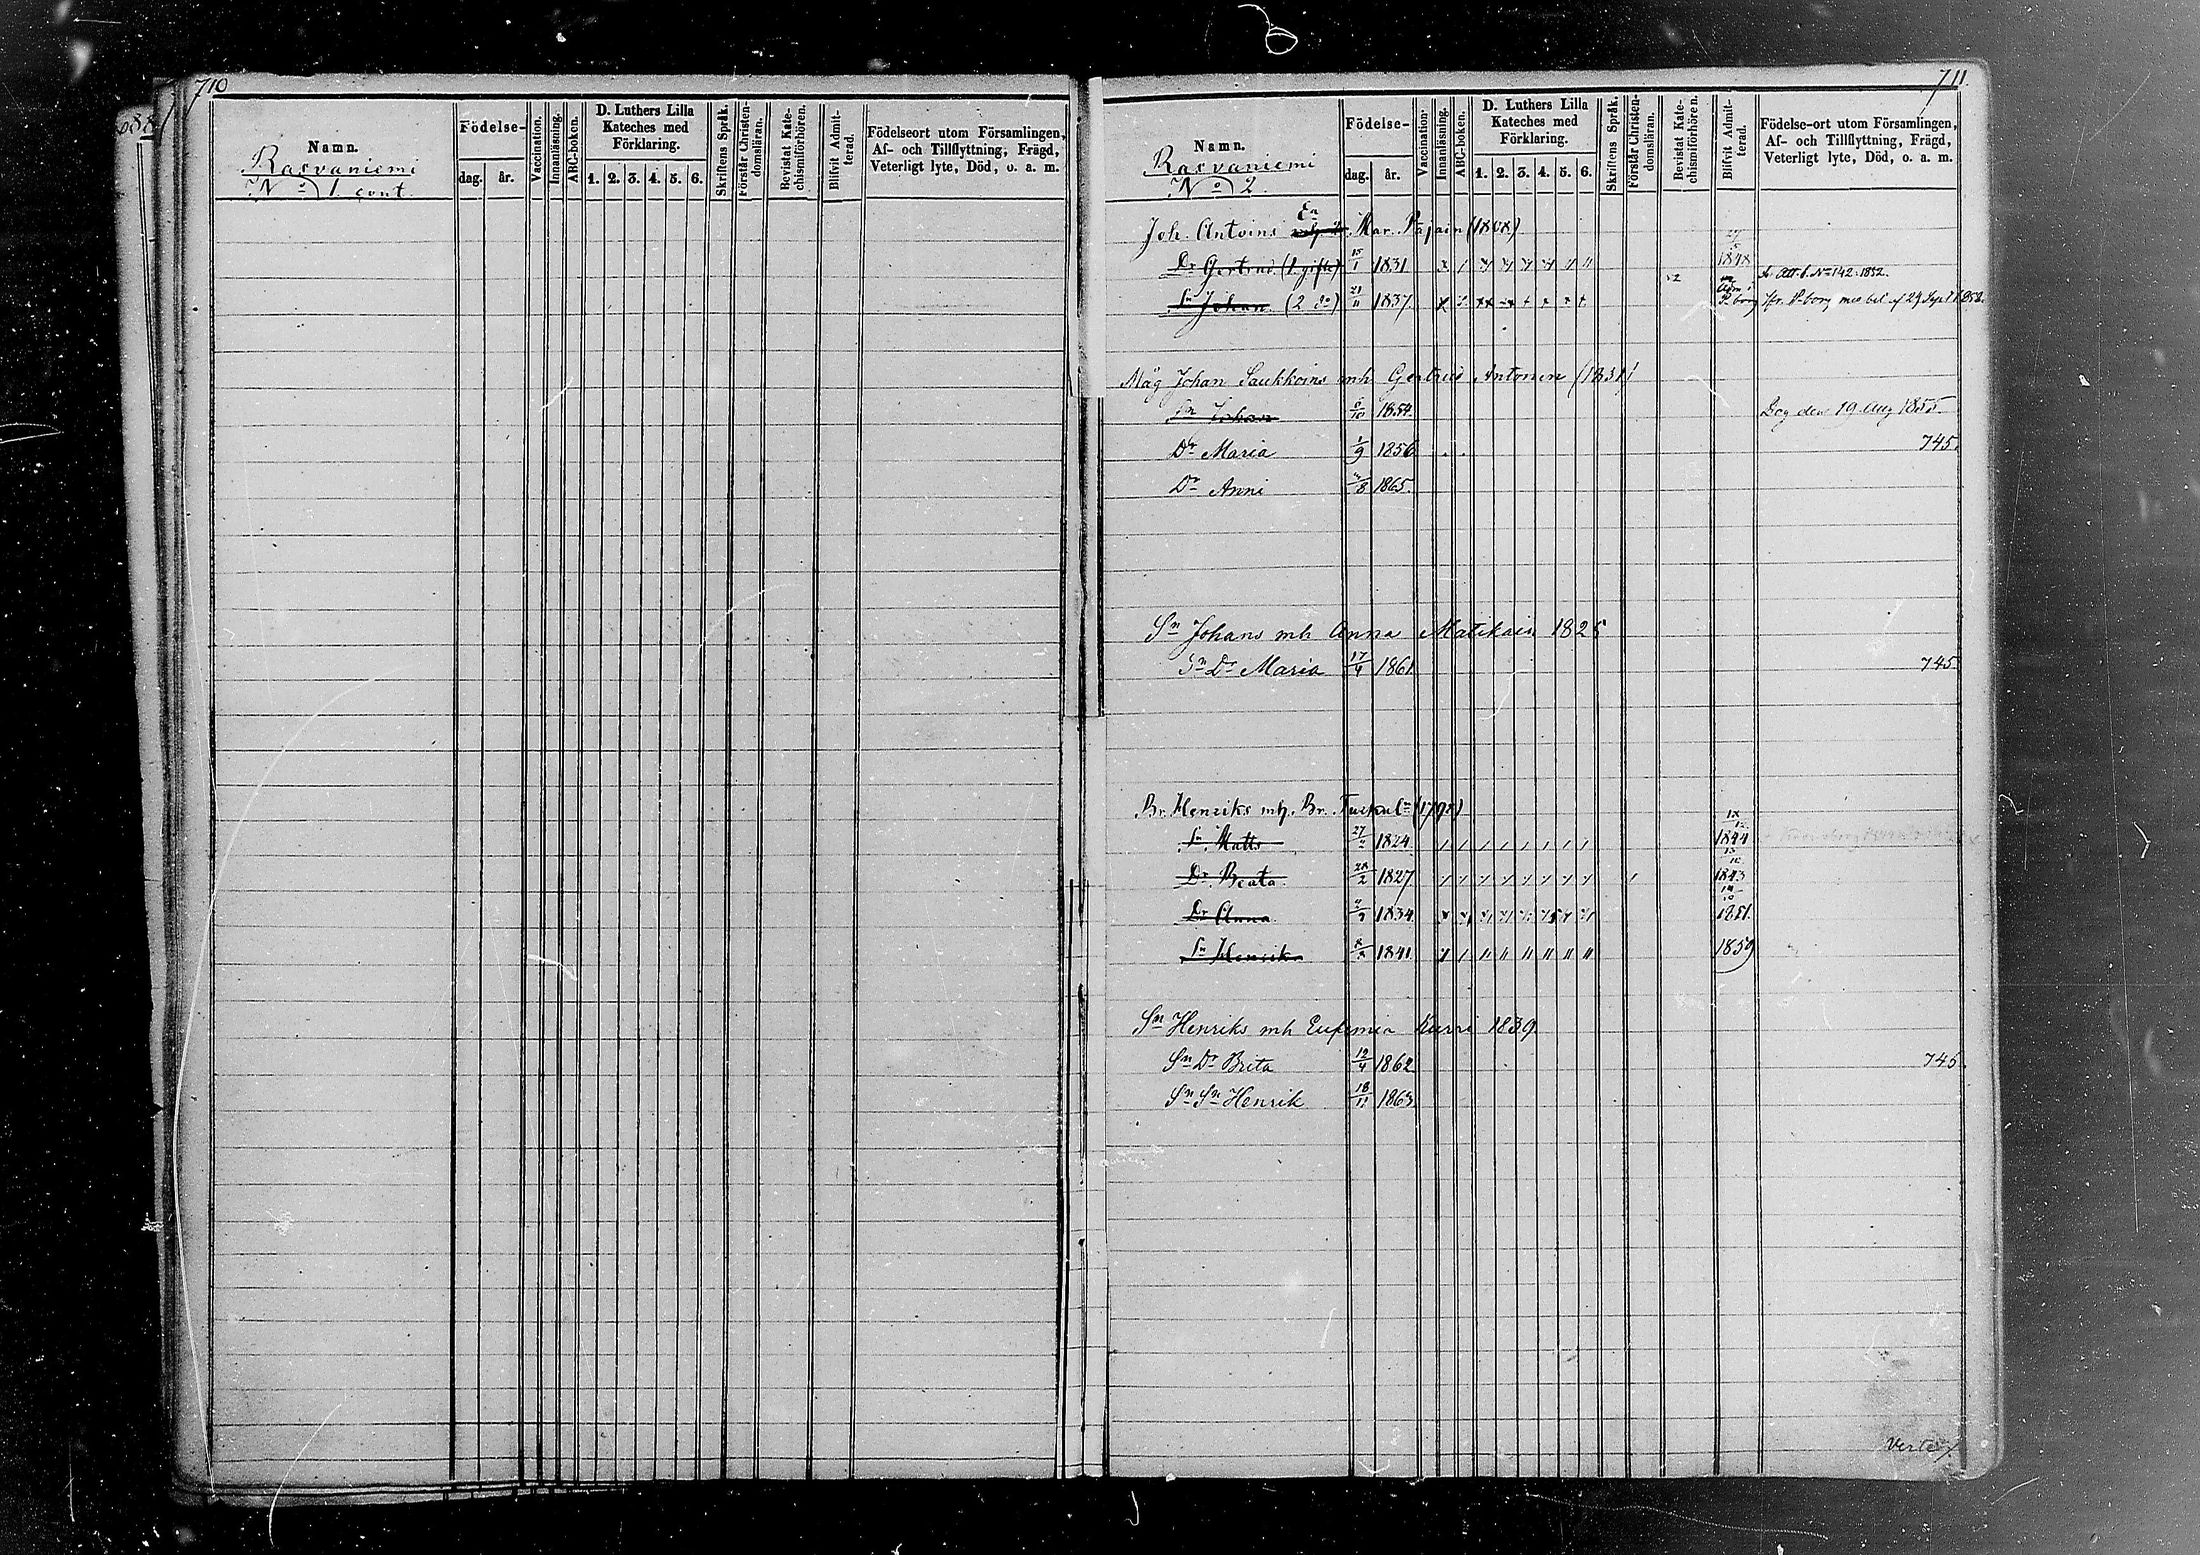 710
Namn.
Rasvaniemi
No 1 cont.
Födelse-
dag. år.
Vaccination.
Innanläsning.
ABC-boken.
D. Luthers Lilla
Kateches med
Förklaring.
1. 2. 3. 4. 5. 6.
Skriftens Språk.
Förstår Christen-
domsläran.
Bevistat Kate-
chismiförhören.
Blifvit Admit-
terad.
Födelseort utom Församlingen,
Af- och Tillflyttning, Frägd,
Veterligt lyte, Död, o. a. m.
711.
Namn.
Rasvaniemi
No 2.
Födelse-
dag. år.
Vaccination.
Innanläsning.
ABC-boken.
D. Luthers Lilla
Kateches med
Förklaring.
1. 2. 3. 4. 5. 6.
Skriftens Språk.
Förstår Christen-
domsläran.
Bevistat Kate-
chismiförhören.
Blifvit Admit-
terad.
Födelse-ort utom Församlingen,
Af- och Tillflyttning, Frägd,
Veterligt lyte, Död, o. a. m.
Joh. Antoins En Mar. Pajain (1808)
Dr Gertrud (1 gifte) 15/1 1831 1848 Att. f. No 142. 1852.
Sn Johan (2 do) 21/11 1837 Adm i P-borg fr. P-borg med bet. af 24 Sept 1858.
Måg Johan Saukkoins mh Gertrud Antonen (1831)
Sn Johan 6/10 1854. Beg den 19 Aug 1855.
Dr Maria 1/9 1856 745.
Dr Anni /8 1865.
Sn Johans mh Anna Matikain 1825
Sn Dr Maria 17/4 1861 745
Br. Henriks mh. Br. (1798)
Sn Matts 27/ 1824 18/12 1844
Dr Beata 28/2 1827 1843
Dr Anna 1834 1851.
Sn Henrik 1841 1859
Sn Henriks mh Eufemia Kurri 1839
Sn Dr Brita 12/4 1862 745.
Sn Sn Henrik 18/11 1863
Verte